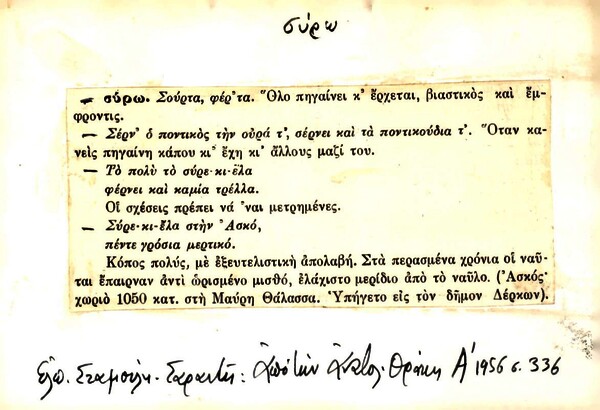 σύρω
— σύρω. Σούρτα, φέρ'τα. Ὅλο πηγαίνει κ' ἔρχεται, βιαστικὸς καὶ ἔμ-
φροντις.
— Σέρν' ὁ ποντικὸς τὴν οὐρά τ', σέρνει καὶ τὰ ποντικούδια τ'. Ὅταν κα-
νεὶς πηγαίνη κάπου κι' ἔχη κι' ἄλλους μαζί του.
— Τὸ πολὺ τὸ σύρε-κι-ἔλα
φέρνει καὶ καμία τρέλλα.
Οἱ σχέσεις πρέπει νά 'ναι μετρημένες.
— Σύρε-κι-ἔλα στὴν Ἀσκό,
πέντε γρόσια μερτικό.
Κόπος πολύς, μὲ ἐξευτελιστικὴ ἀπολαβή. Στὰ περασμένα χρόνια οἱ ναῦ-
ται ἔπαιρναν ἀντὶ ὡρισμένο μισθό, ἐλάχιστο μερίδιο ἀπὸ τὸ ναῦλο. (Ἀσκός·
χωριὸ 1050 κατ. στὴ Μαύρη Θάλασσα. Ὑπήγετο εἰς τὸν δῆμον Δέρκων).
Ἐλπ. Σταμούλη-Σαραντῆ: Ἀπὸ τὴν Ἀνατολ. Θράκη Α' 1956 σ. 336